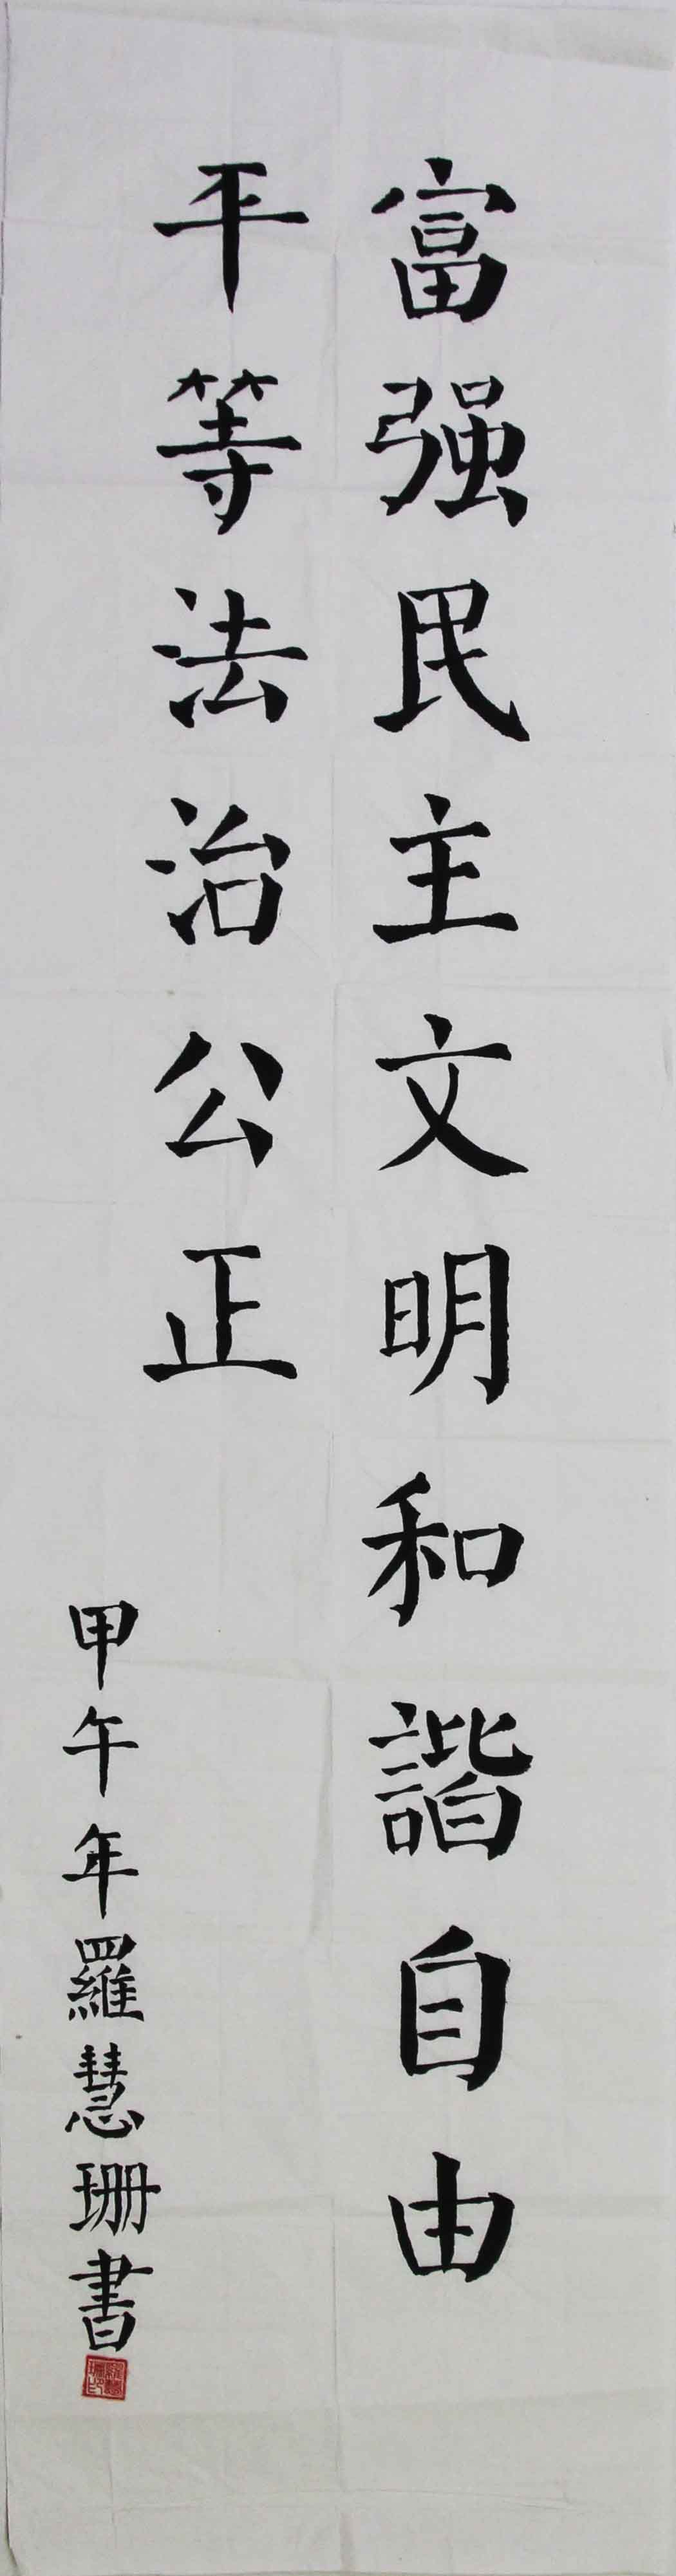 富强民主文明和諧自由
平等法治公正
甲午年羅慧珊書